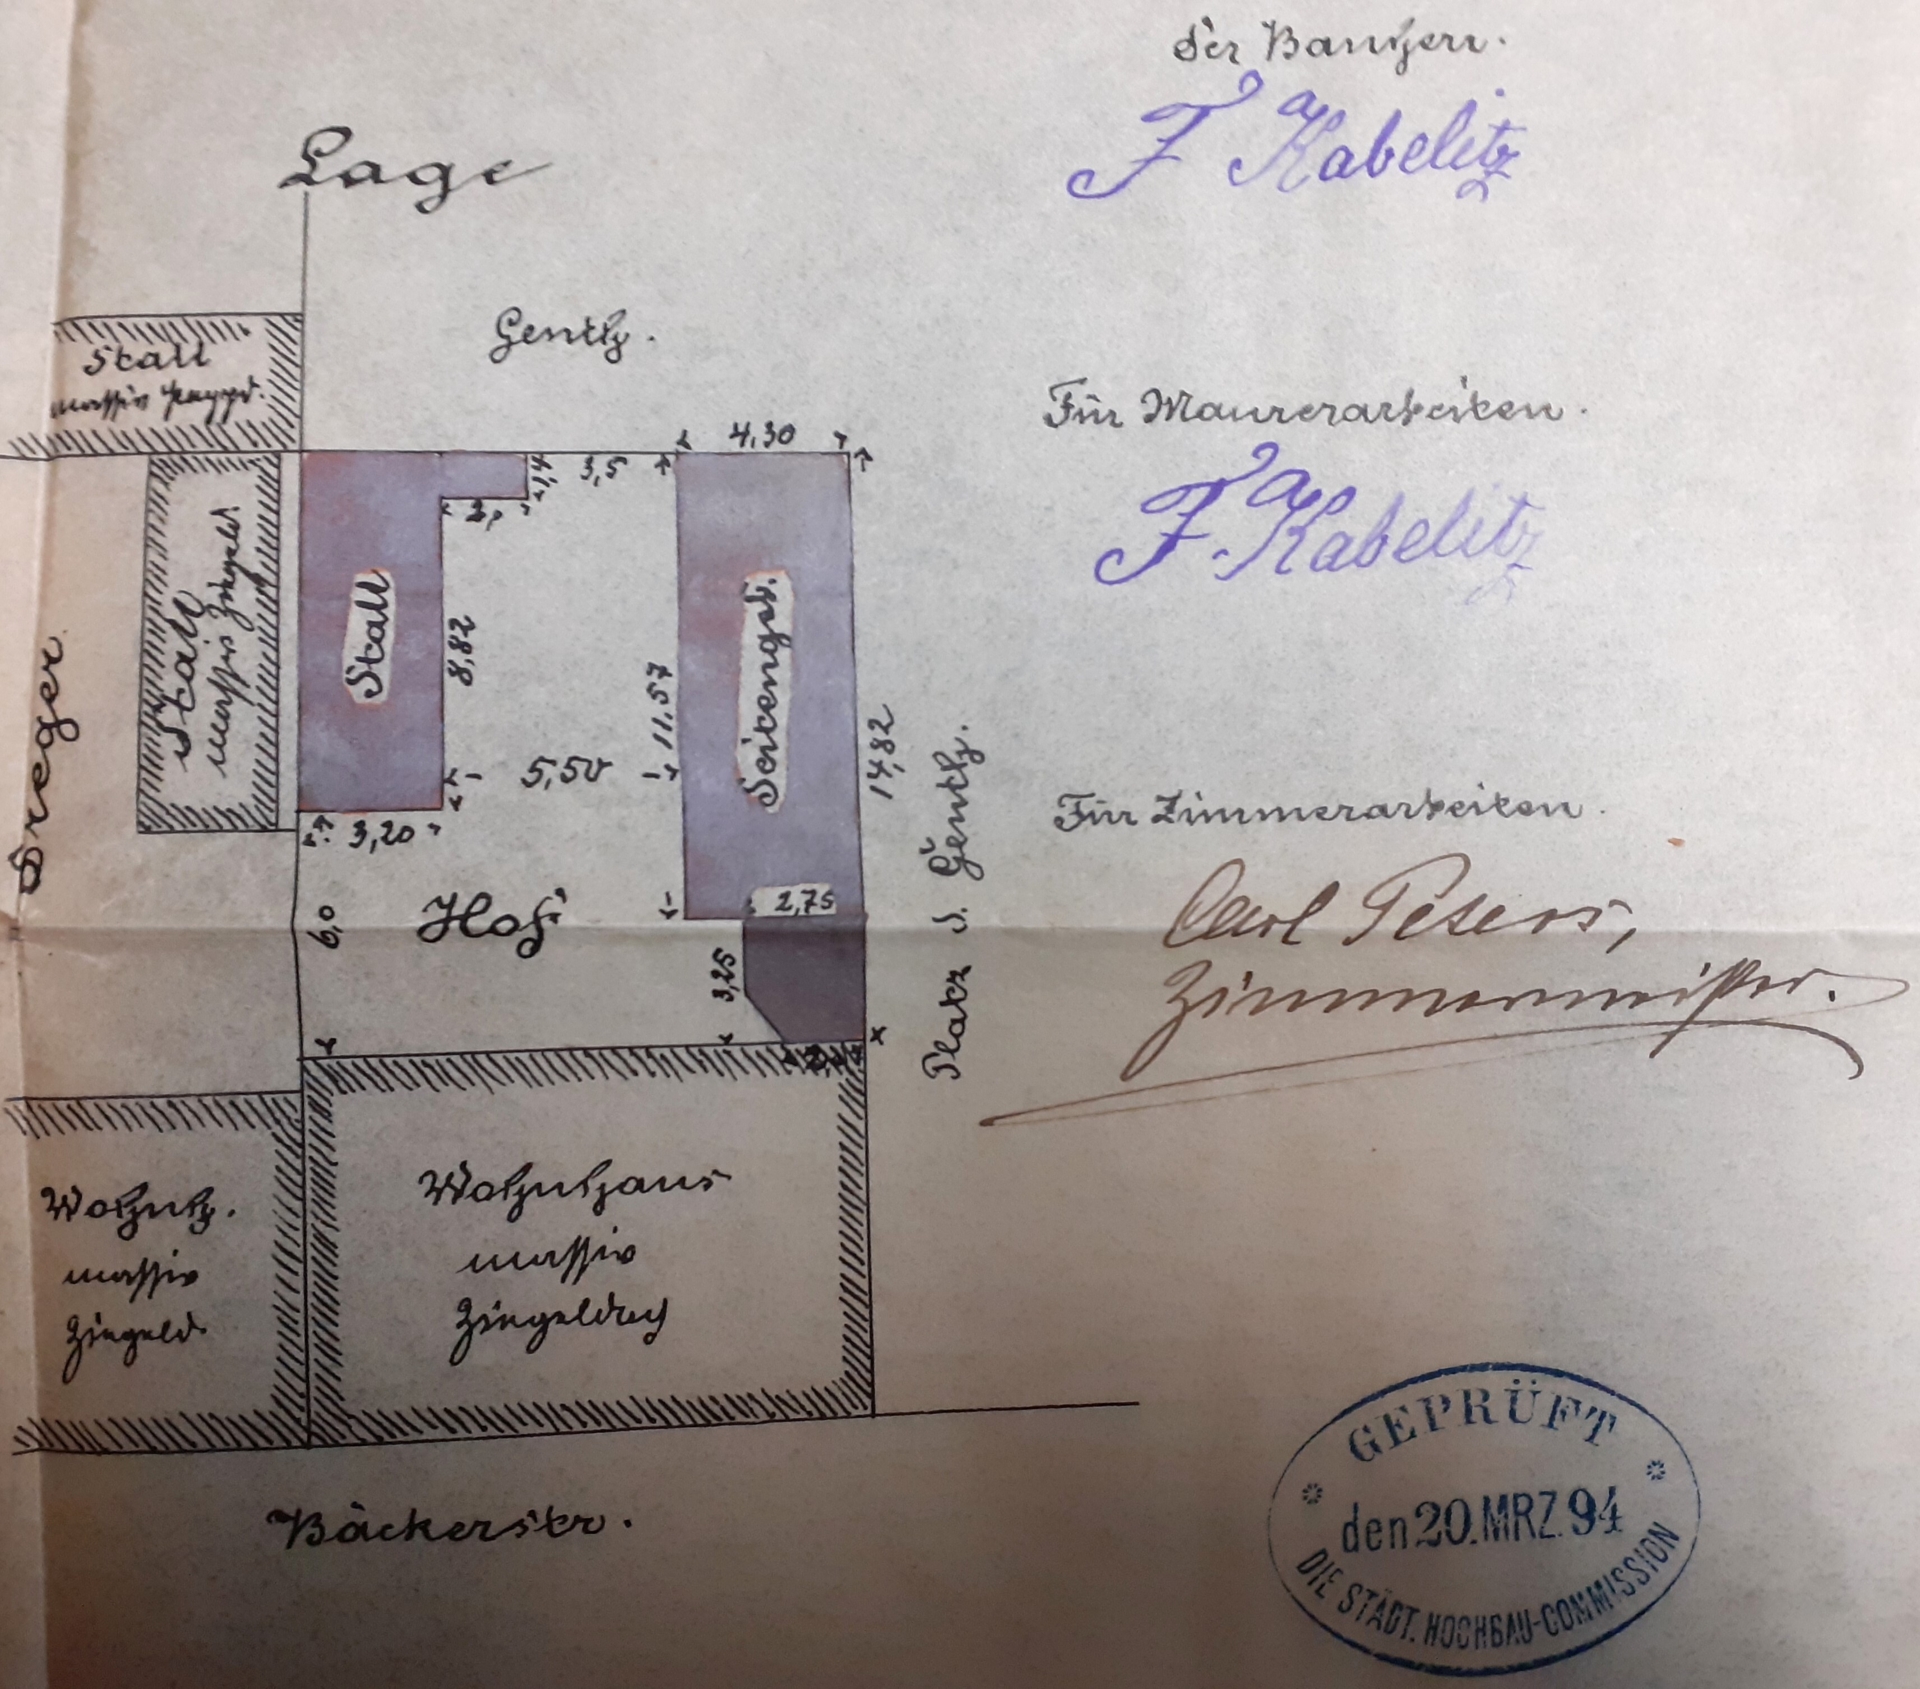 Der Bauherr.
F Kabelitz
Lage
Gentz.
Stall
massiv Pappd.
Für Maurerarbeiten.
F. Kabelitz
4,30
1,4
3,5
2,
Stall
massiv Ziegeld
Stall
8,82
11,57
Seitengeb.
14,82
5,50
3,20
Dreger
6,0
Hof
2,75
3,25
Platz d. Gentz.
Für Zimmerarbeiten.
Carl Peters,
Zimmermeister.
Wohnh.
massiv
Ziegeld.
Wohnhaus
massiv
Ziegeldach
Bäckerstr.
GEPRÜFT
den 20. MRZ. 94
DIE STÄDT. HOCHBAU-COMMISSION